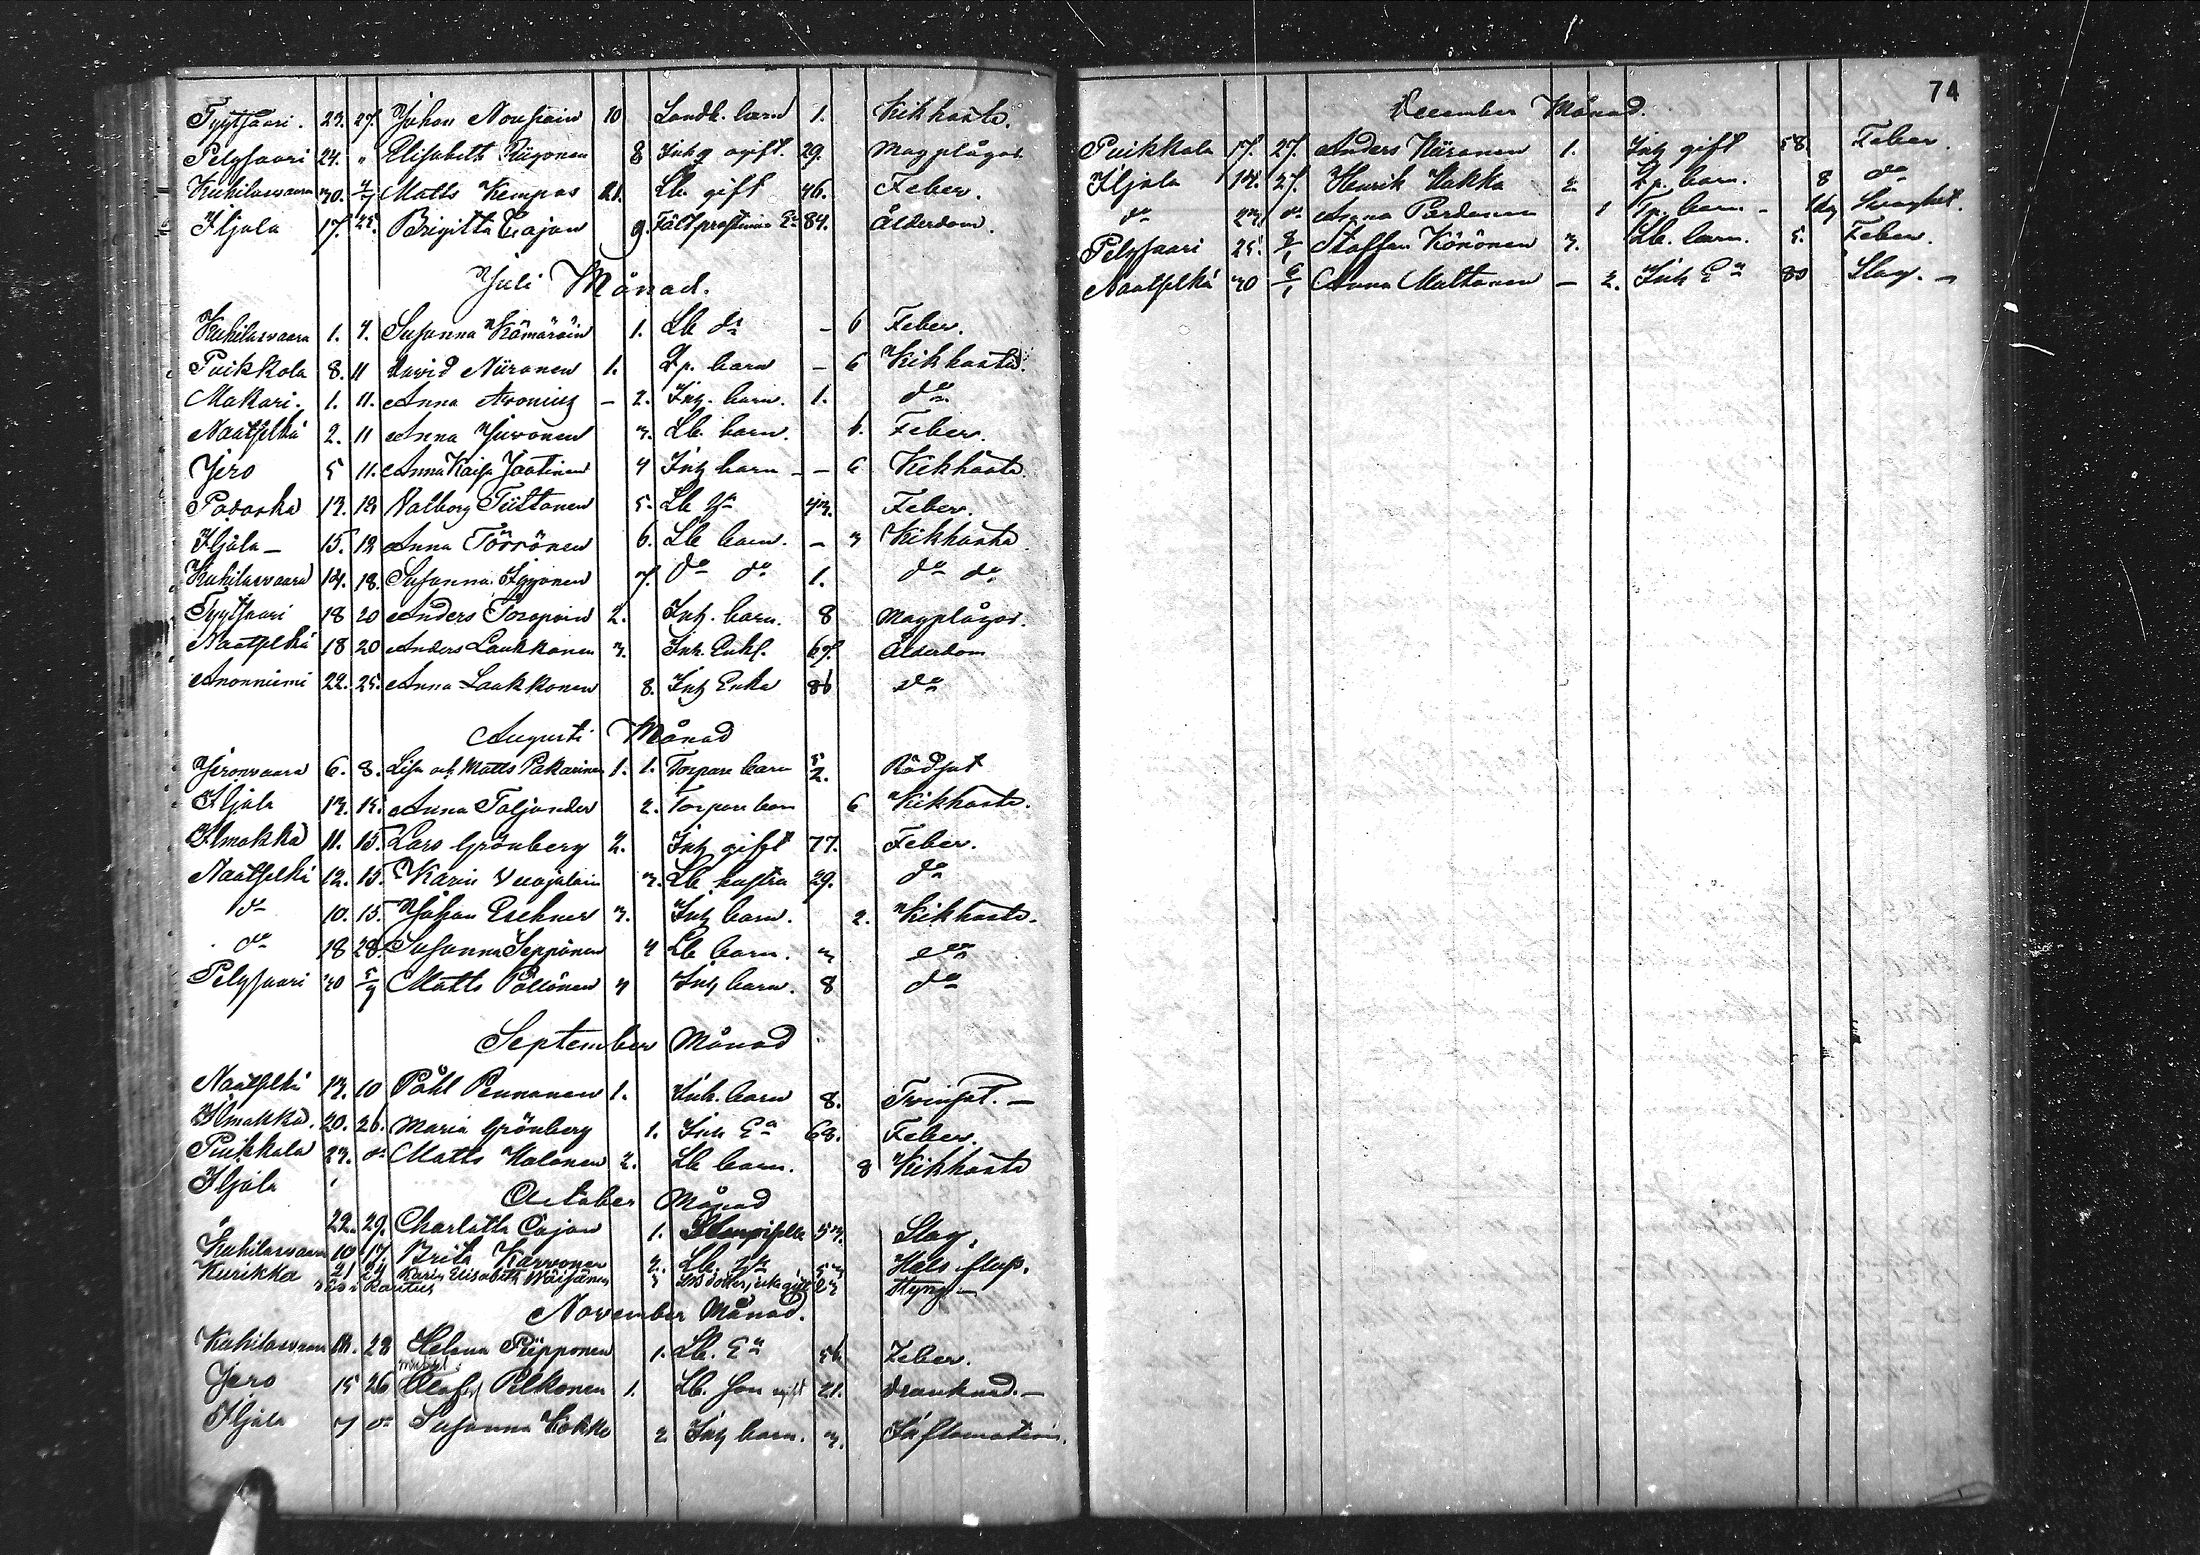 Tyytsaari. 23. 27. Johan Nousiain 10 Landb. barn 1. Kikhosta.
Pelysaari 24. " Elisabeth 8 Inh. 29. Magplågor.
Kuhilasvaara 30. 4/7 Matts Kempas 21. Lb. gift 46. Feber.
Iljala 17. 25. Brigitta Cajan 9. 84. Ålderdom.
Juli Månad.
Kuhilasvaara 1. 4. Susanna Kämäräin 1. Lb do – 6 Feber.
Puikkola 8. 11 David Niiranen 1. Lp. barn – 6 Kikhosta.
Makari. 1. 11. Anna Aronius – 2. Inh. barn. 1. do
Naatselkä 2. 11 Anna Juvonen 3. Lb. barn. 6. Feber.
Jero 5 11. Anna Kaisa Jaatinen 4 Inh barn – – 6 Kikhosta.
Padaska 13. 19 Valborg Tiittanen 5. Lb 43. Feber.
Iljala – 15. 19 Anna Törrönen 6. Lb barn. – 3 Kikhosta
Kuhilasvaara 14. 18. Susanna Ikonen 7. do do 1. do do
Tyytsaari 18 20 Anders Toropain 2. Inh. barn. 8 Magplågor.
Naatselkä 18 20 Anders Laukkanen 3. Inh. Enkl. 67. Ålderdom
Anonniemi 22. 25. Anna Laukkonen 8. Inh Enka 86 do
Augusti Månad
Jeronvaara 6. 8. Lisa och Matts Pakarinen 1. 1. Torpare barn 5 2. Rödsot
Iljala 13. 15. Anna Taljander 2. Torpare barn 6 Kikhosta.
Ilmakka 11. 15. Lars Grönberg 2. Inh gift 77. Feber.
Naatselkä 12. 15. Karin 3. Lb hustru 29. do
do 10. 15. Johan Eschner 3. Inh barn. 2. Kikhosta.
do 18 28. Susanna Seppänen 4 Lb barn. 3 do
Pelysaari 30 5/9 Matts Pöllönen 4 Inh barn. 8 do
September Månad
Naatselkä 13. 10 Påhl Pennanen 1. Inh. barn 8. Tvinsot. –
Ilmakka. 20. 26. Maria Grönberg 1. Inh Ea 68. Feber.
Puikkola 23. do Matts Halonen 2. Lb barn. 8 Kikhosta
Iljala
October Månad
" 22. 29. Charlotta Cajan 1. 53. Slag.
Kuhilasvaara 10 17. Brita Karvonen 2. Lb. Hals fluss.
Kurikka 21 24 Karin Elisabeth Väisänen 3 Lb dotter, icke gift 23 Styng –
Rautus
November Månad.
Kuhilasvaara 18. 28 Helena Piipponen 1. Lb. Ea 56 Feber.
Jero 15 26 Olof Pelkonen 1. Lb. son 21. drunknad. –
Iljala 7 do Susanna Kokko 2 Inh barn. 3. Inflamation.
74
December Månad.
Puikkola 17. 27. Anders Niiranen 1. Inh gift 58. Feber.
Iljala 14. 27. Henrik Hakka 2 Lp. barn. 8 do
do 23 do Anna Pardanen 1 Tp. barn – 1 dg Svaghet.
Pelysaari 25. 8/1 Staffan Könönen 3. Lb. barn. 5. Feber.
Naatselkä 30 6/1 Anna Multanen – 2. Inh Ea 80 Slag. –